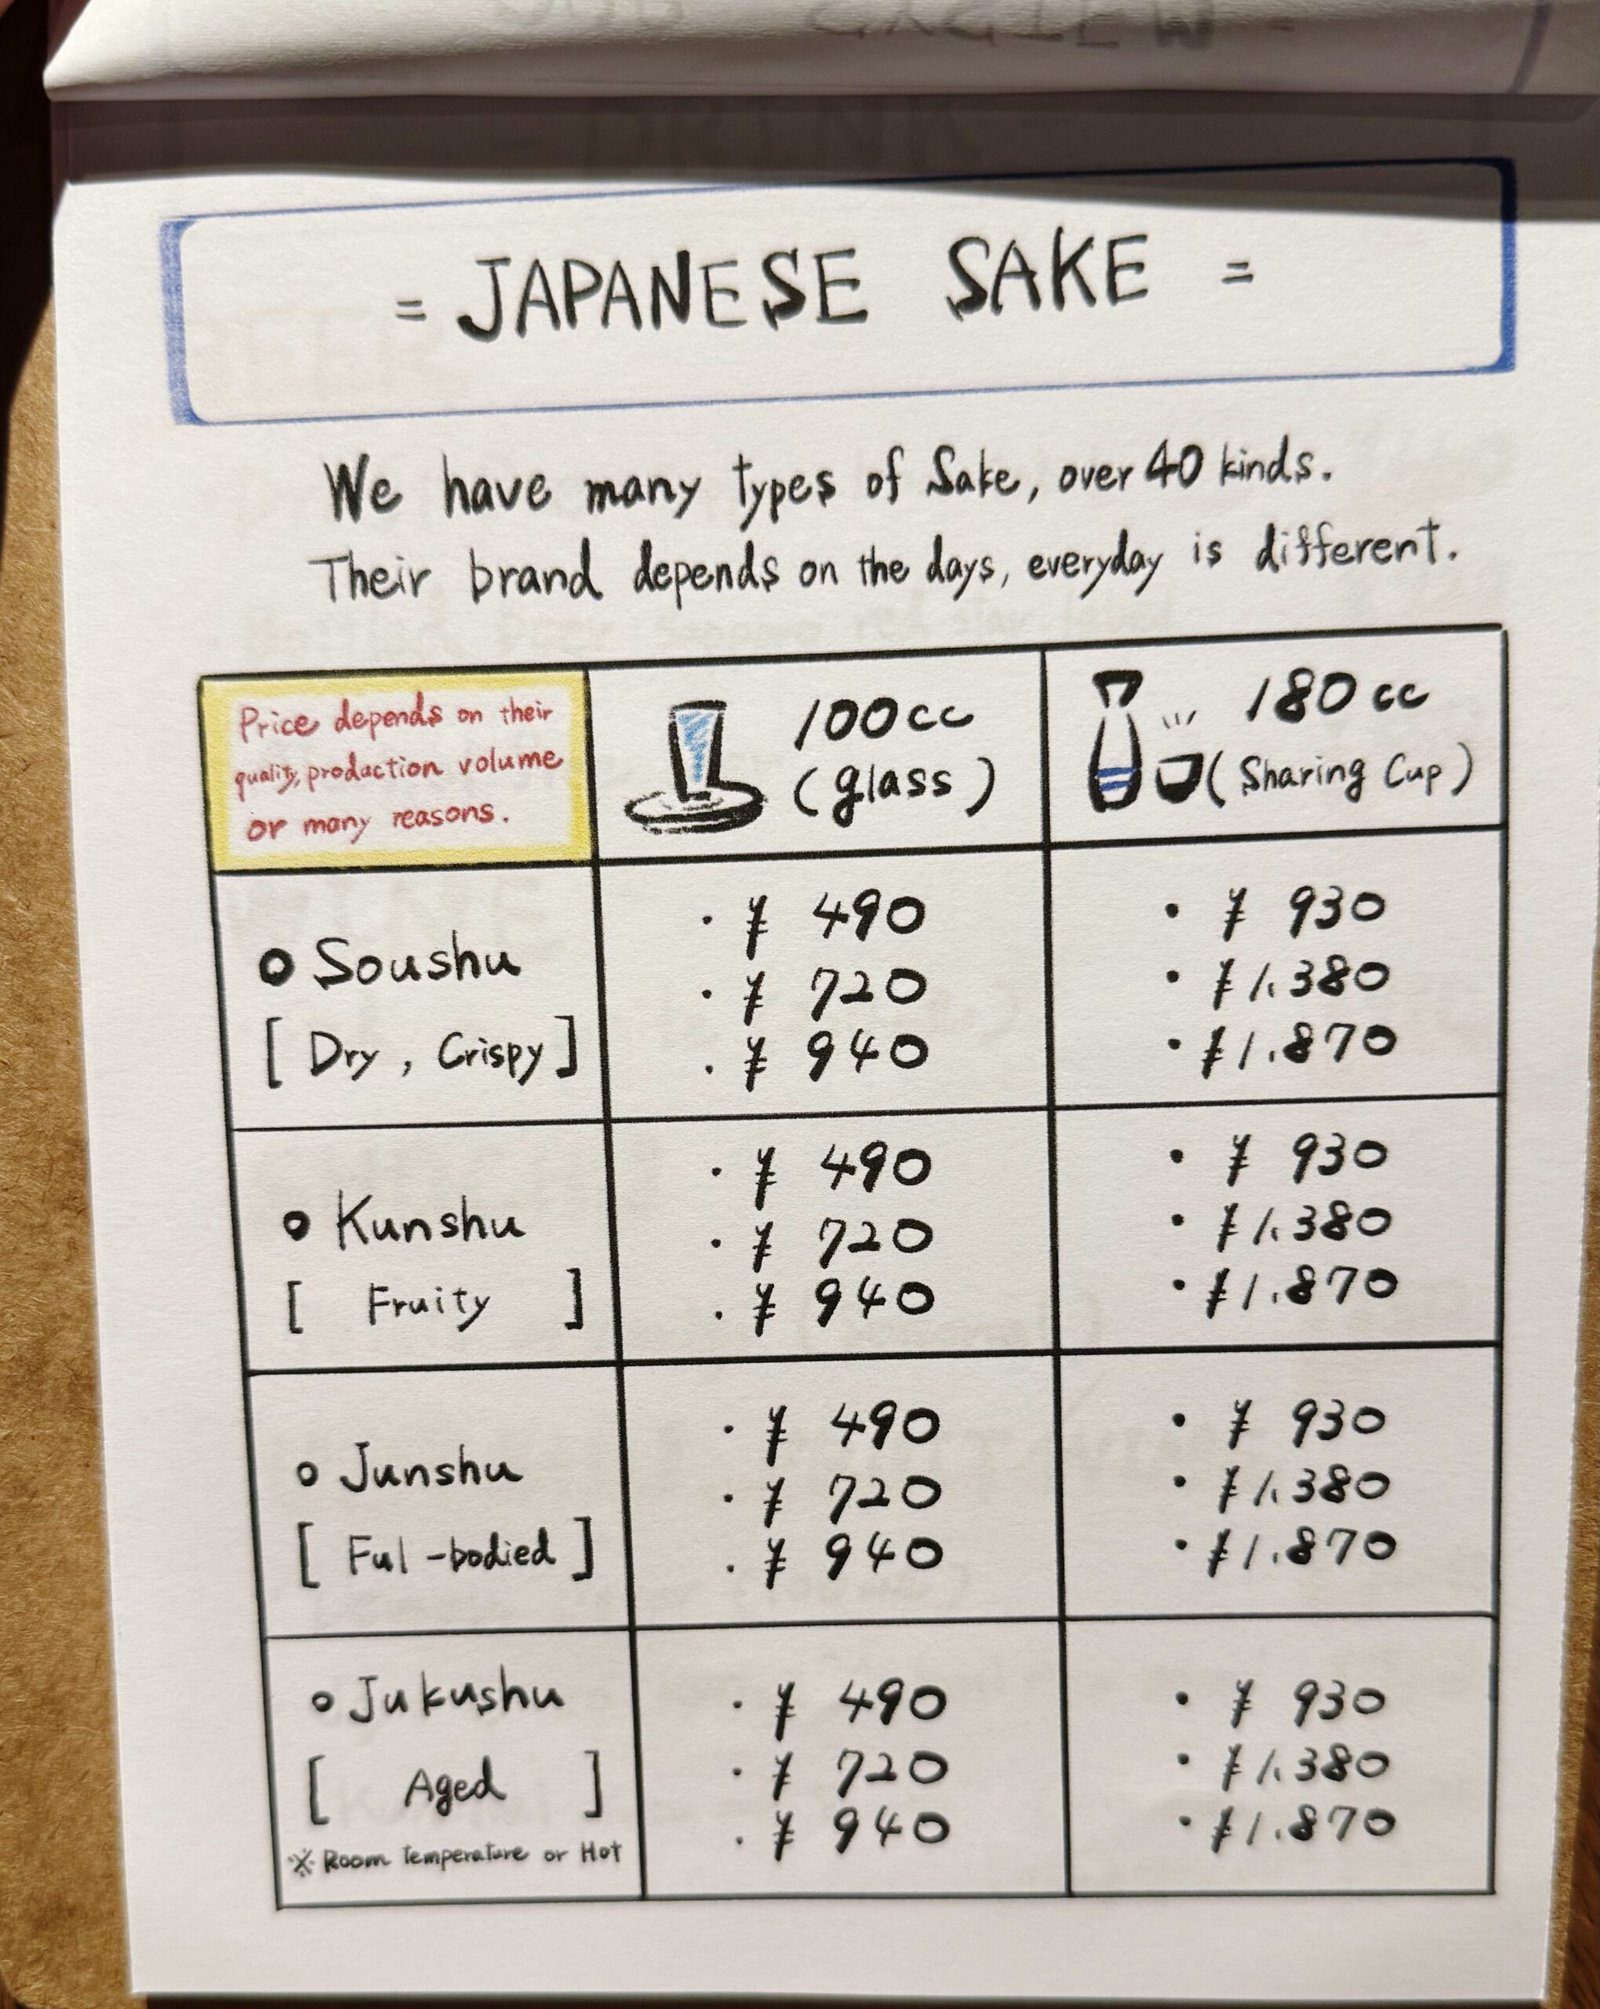 = JAPANESE SAKE =
We have many types of Sake, over 40 kinds.
Their brand depends on the days, everyday is different.
Price depends on their
quality, production volume
or many reasons.
100cc
(glass)
180cc
(Sharing Cup)
○ Soushu
[ Dry, Crispy ]
・¥ 490
・¥ 720
・¥ 940
・¥ 930
・¥1,380
・¥1,870
○ Kunshu
[ Fruity ]
・¥ 490
・¥ 720
・¥ 940
・¥ 930
・¥1,380
・¥1,870
○ Junshu
[ Ful-bodied ]
・¥ 490
・¥ 720
・¥ 940
・¥ 930
・¥1,380
・¥1,870
○ Jukushu
[ Aged ]
※ Room Temperature or Hot
・¥ 490
・¥ 720
・¥ 940
・¥ 930
・¥1,380
・¥1,870